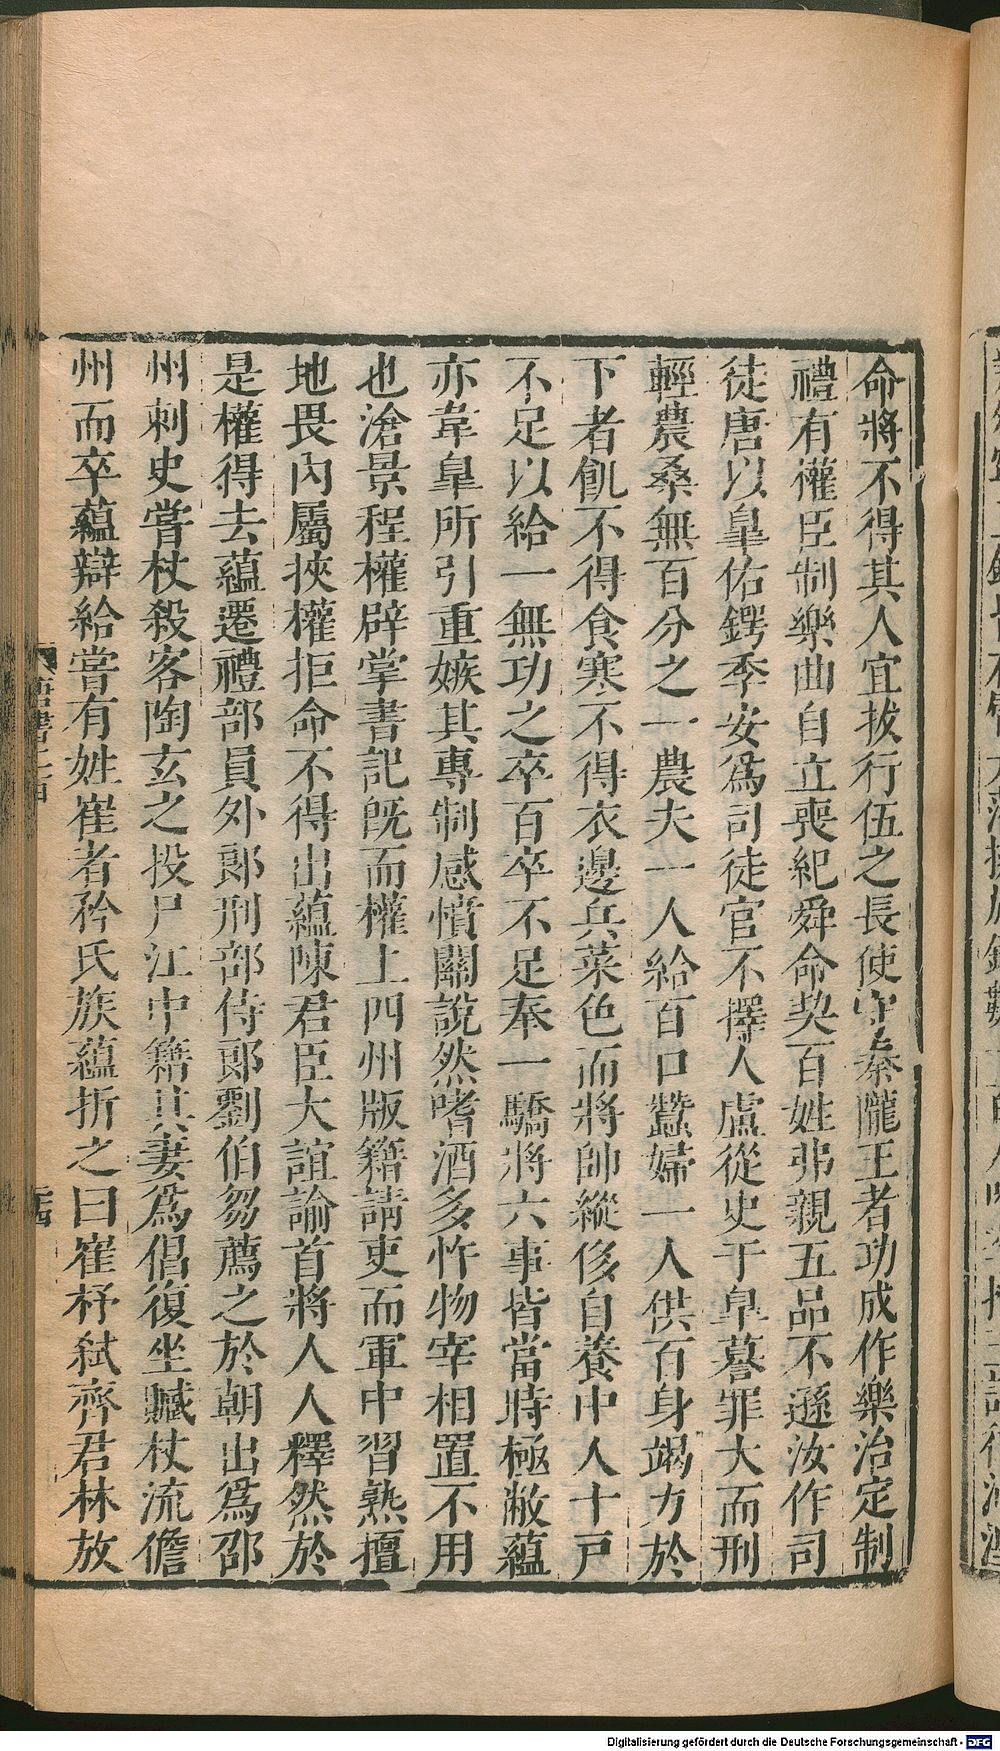 命將不得其人宜拔行伍之長使守秦隴王者功成作樂治定制
禮有權臣制樂曲自立喪紀舜命契百姓弗親五品不遜汝作司
徒唐以皐佑鍔季安爲司徒官不擇人盧從史于皐謩罪大而刑
輕農桑無百分之一農夫一人給百口蠶婦一人供百身竭力於
下者飢不得食寒不得衣邊兵菜色而將帥縱侈自養中人十戸
不足以給一無功之卒百卒不足奉一驕將六事皆當時極敝蘊
亦韋皐所引重嫉其專制感憤關說然嗜酒多忤物宰相置不用
也滄景程權辟掌書記旣而權上四州版籍請吏而軍中習熟擅
地畏內屬挾權拒命不得出蘊陳君臣大誼諭首將人人釋然於
是權得去蘊遷禮部員外郎刑部侍郎劉伯芻薦之於朝出爲邵
州刺史嘗杖殺客陶玄之投尸江中籍其妻爲倡復坐贓杖流儋
州而卒蘊辯給嘗有姓崔者矜氏族蘊折之曰崔杼弑齊君林放
Digitalisierung gefördert durch die Deutsche Forschungsgemeinschaft - DFG